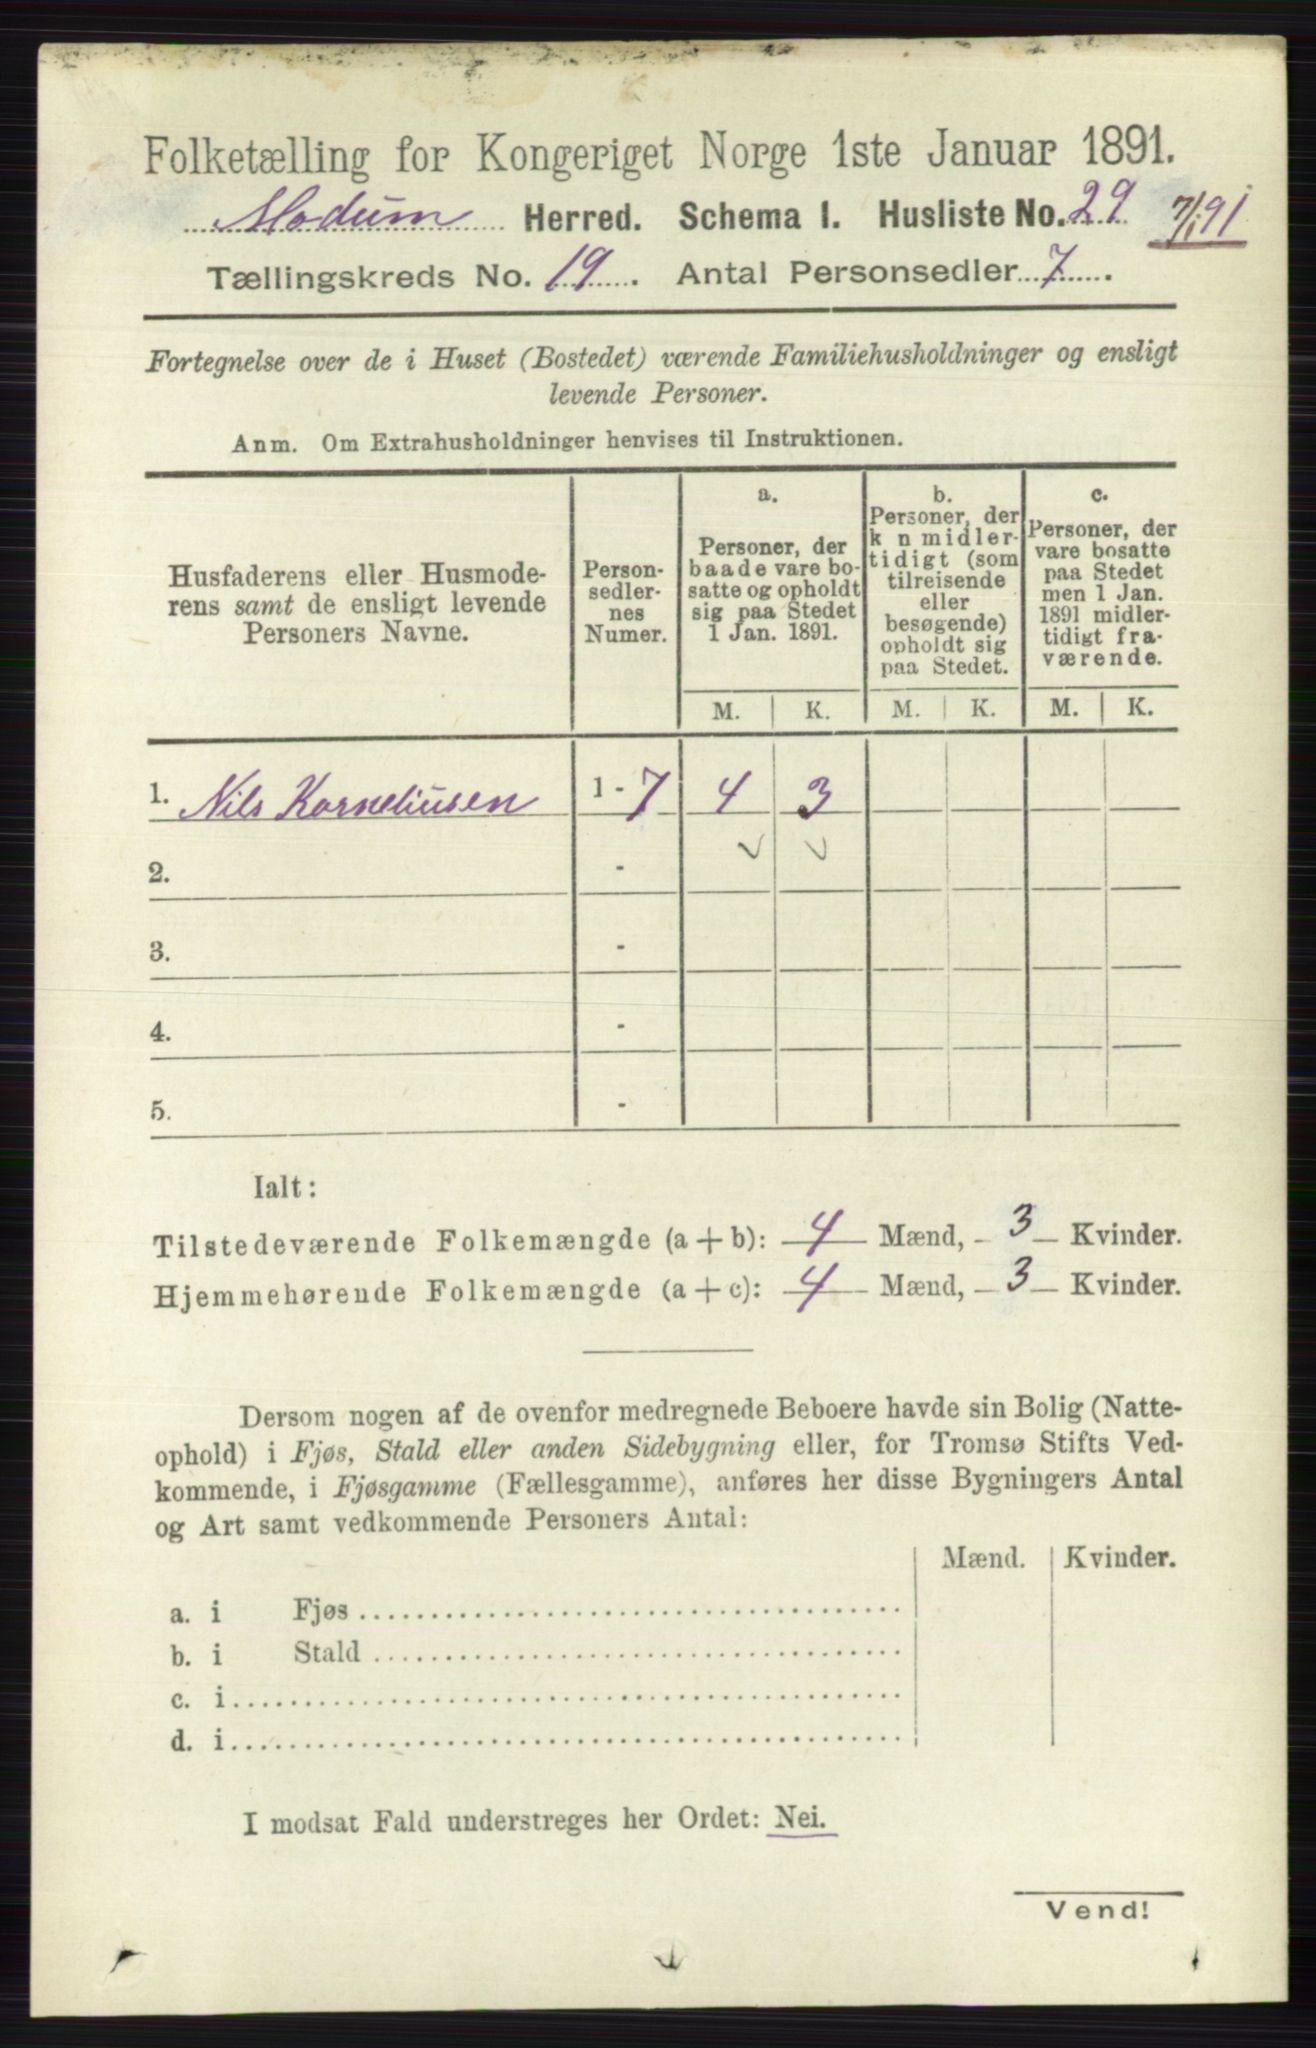 Folketælling for Kongeriget Norge 1ste Januar 1891.
Modum Herred. Schema I. Husliste No. 29 7/1 91
Tællingskreds No. 19. Antal Personsedler 7.
Fortegnelse over de i Huset (Bostedet) værende Familiehusholdninger og ensligt
levende Personer.
Anm. Om Extrahusholdninger henvises til Instruktionen.
Husfaderens eller Husmode-
rens samt de ensligt levende
Personers Navne.
Person-
sedler-
nes
Numer.
a.
Personer, der
baade vare bo-
satte og opholdt
sig paa Stedet
1 Jan. 1891.
b.
Personer, der
k n midler-
tidigt (som
tilreisende
eller
besøgende)
opholdt sig
paa Stedet.
c.
Personer, der
vare bosatte
paa Stedet
men 1 Jan.
1891 midler-
tidigt fra-
værende.
M. K. M. K. M. K.
1. Nils Korneliusen 1 - 7 4 3
2. -
3. -
4. -
5. -
Ialt:
Tilstedeværende Folkemængde (a + b): 4 Mænd, 3 Kvinder.
Hjemmehørende Folkemængde (a + c): 4 Mænd, 3 Kvinder.
Dersom nogen af de ovenfor medregnede Beboere havde sin Bolig (Natte-
ophold) i Fjøs, Stald eller anden Sidebygning eller, for Tromsø Stifts Ved-
kommende, i Fjøsgamme (Fællesgamme), anføres her disse Bygningers Antal
og Art samt vedkommende Personers Antal:
Mænd. Kvinder.
a. i Fjøs
b. i Stald
c. i
d. i
I modsat Fald understreges her Ordet: Nei.
Vend!